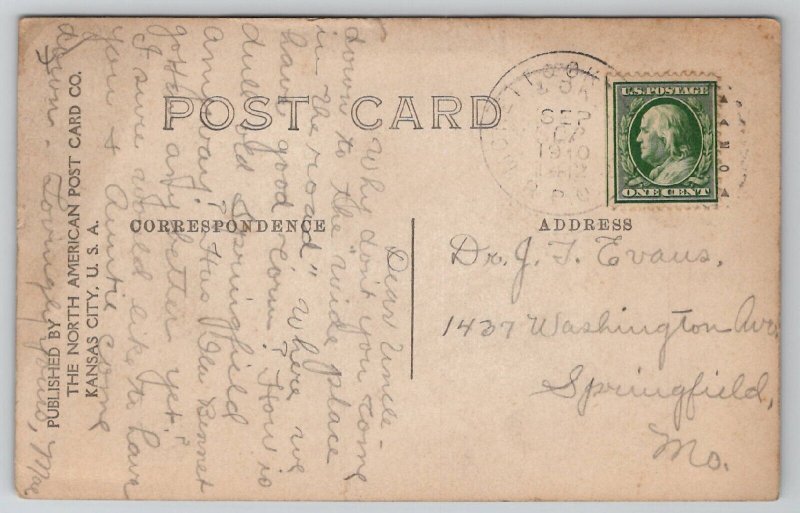 POST CARD
CORRESPONDENCE
ADDRESS
PUBLISHED BY
THE NORTH AMERICAN POST CARD CO.
KANSAS CITY, U. S. A.
U.S. POSTAGE
ONE CENT
SEP
1910
Dr. J. T. Evans,
1437 Washington Ave.
Springfield,
Mo.
Dear Uncle -
Why don't you come
down to the "wide place
in the road" where we
have good "corn"? How is
dull old Springfield
anyway? Has Bennet
gotten any better yet?
I sure would like to have
you & Auntie come
down. Lovingly yours, Mae